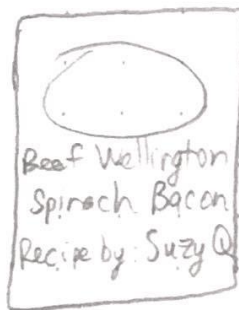 Beef Wellington
Spinach Bacon
Recipe by: Suzy Q